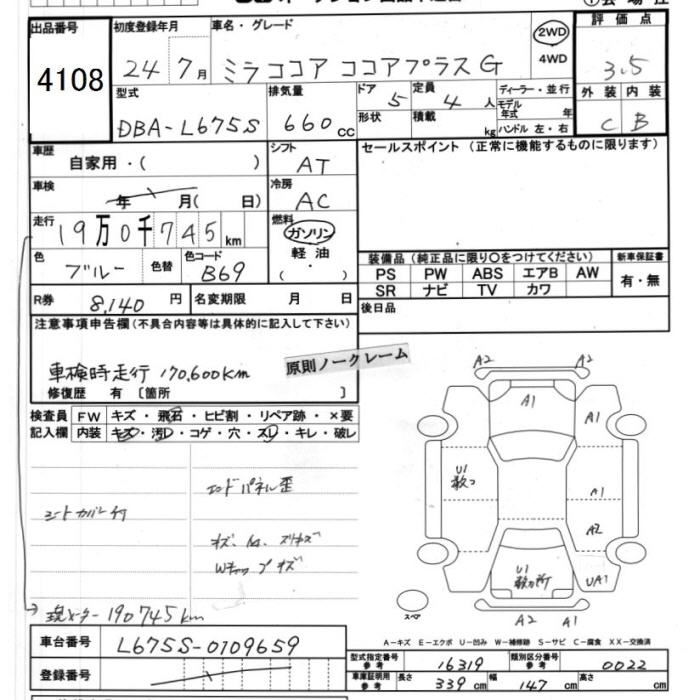 出品番号
4108
初度登録年月
24年7月
車名・グレード
ミラココア ココアプラスG
2WD
4WD
評価点
3.5
外装 内装
C B
型式
DBA-L675S
排気量
660cc
ドア
5
定員
4人
形状
積載
kg
ディーラー・並行
モデル年式 年
ハンドル 左・右
車歴
自家用・( )
シフト
AT
セールスポイント (正常に機能するものに限ります)
車検
年 月( 日)
冷房
AC
走行
19万0千745km
燃料
ガソリン
軽油
( ・ )
色
ブルー
色替
色コード
B69
装備品(純正品に限り○をつけてください)
新車保証書
PS PW ABS エアB AW
有・無
SR ナビ TV カワ
R券
8,140円
名変期限 月 日
後日品
注意事項申告欄(不具合内容等は具体的に記入して下さい)
車検時走行 170,600km
原則ノークレーム
修復歴 有 〔箇所 〕
検査員
記入欄
FW キズ・飛石・ヒビ割・リペア跡・×要
内装 キズ・汚レ・コゲ・穴・スレ・キレ・破レ
エンドパネル歪
シートカバー付
Wキャップキズ
現メーター190745km
A2 A2
A1
A1
U1
A1
A2
U1
UA1
スペア
A2 A1
A-キズ E-エクボ U-凹み W-補修跡 S-サビ C-腐食 XX-交換済
車台番号
L675S-0109659
登録番号
型式指定番号
参考
16319
類別区分番号
参考
0022
車庫証明用
参考
長さ 339cm 幅 147cm 高さ cm